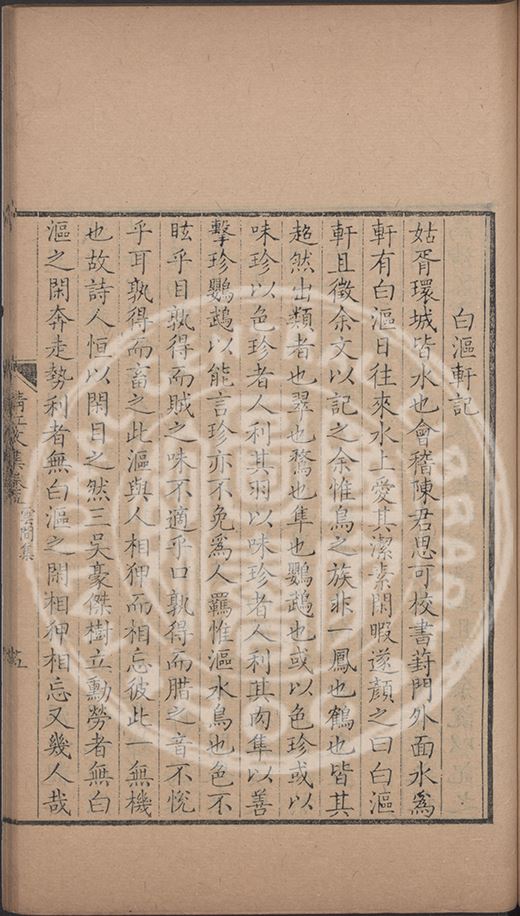 白漚軒記
姑胥環城皆水也會稽陳君思可校書葑門外面水爲
軒有白漚日往來水上愛其潔素閑暇遂顏之曰白漚
軒且徵余文以記之余惟鳥之族非一鳳也鶴也皆其
超然出類者也翠也鶩也隼也鸚鵡也或以色珍或以
味珍以色珍者人利其羽以味珍者人利其肉隼以善
擊珍鸚鵡以能言珍亦不免爲人羈惟漚水鳥也色不
眩乎目孰得而賊之味不適乎口孰得而腊之音不悅
乎耳孰得而畜之此漚與人相狎而相忘彼此一無機
也故詩人恒以閑目之然三吳豪傑樹立勳勞者無白
漚之閑奔走勢利者無白漚之閑相狎相忘又幾人哉
清江文集
雲間集
五